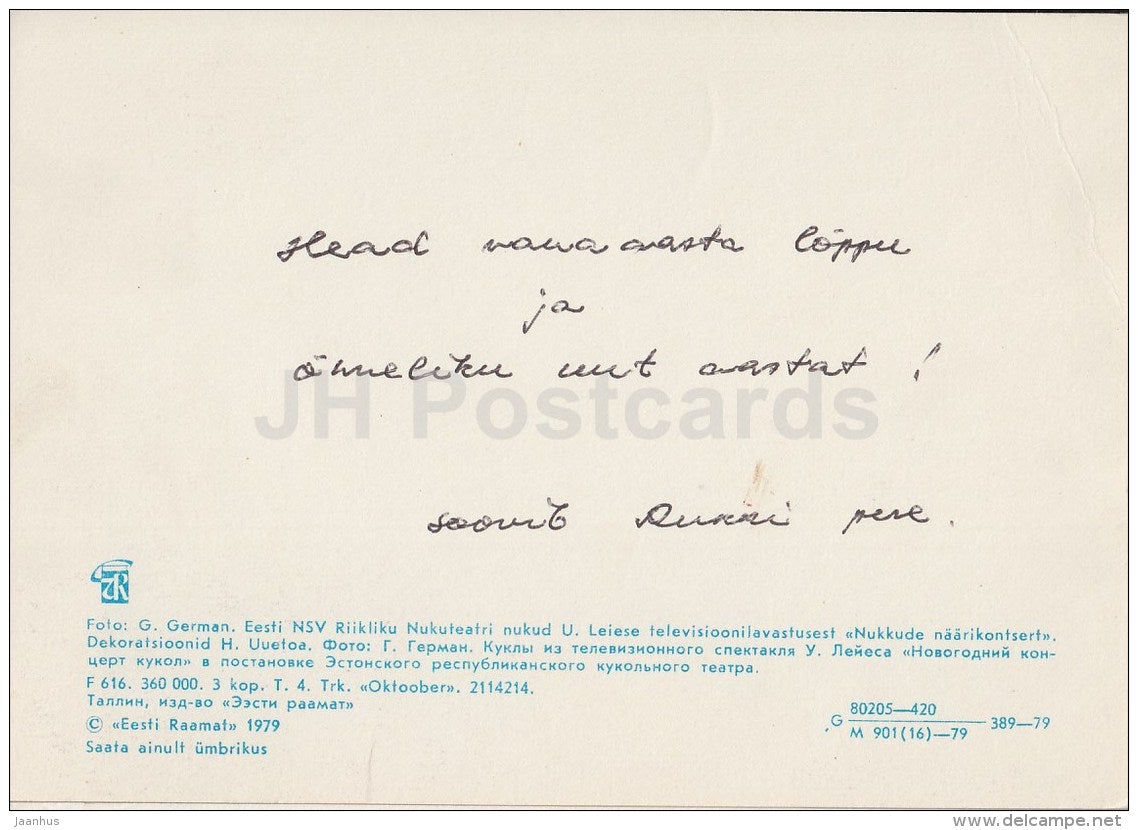 Head vana aasta lõppu
ja
õnneliku uut aastat!
JH Postcards
soovib pere.
Foto: G. German. Eesti NSV Riikliku Nukuteatri nukud U. Leiese televisioonilavastusest «Nukkude näärikontsert».
Dekoratsioonid H. Uuetoa. Фото: Г. Герман. Куклы из телевизионного спектакля У. Лейеса «Новогодний кон-
церт кукол» в постановке Эстонского республиканского кукольного театра.
F 616. 360 000. 3 kop. T. 4. Trk. «Oktoober». 2114214.
Таллин, изд-во «Ээсти раамат»
© «Eesti Raamat» 1979
Saata ainult ümbrikus
G 80205—420
М 901(16)—79
389—79
Jaanhus
delcampe.net